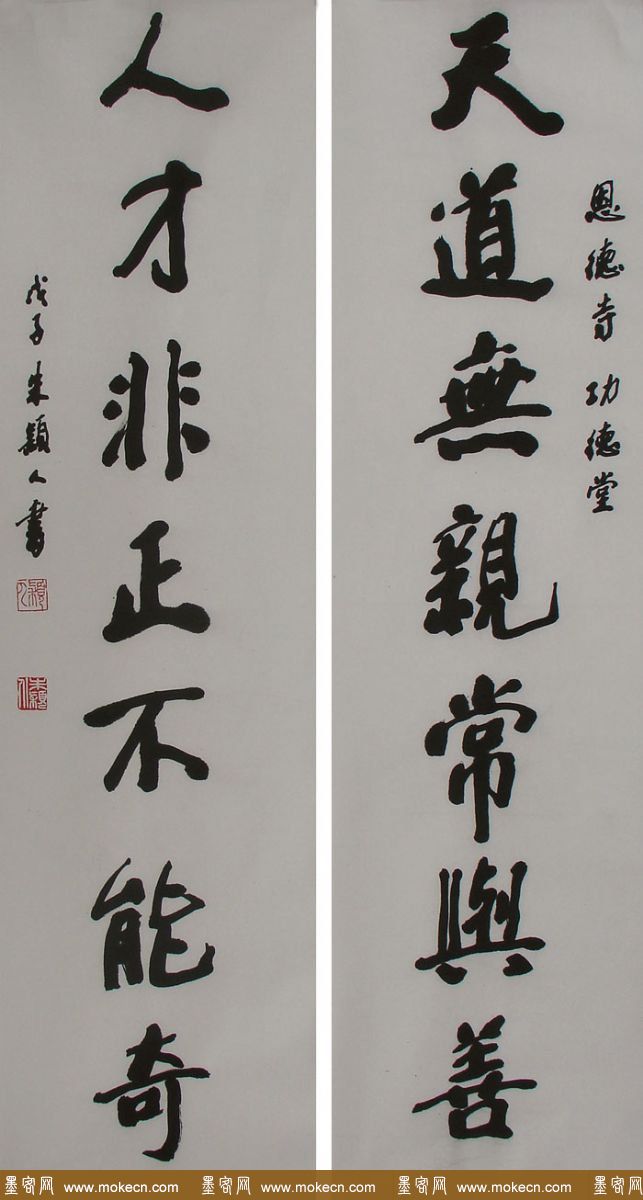 恩德寺 功德堂
天道無親常與善
人才非正不能奇
戊子朱穎人書
墨客网 www.mokecn.com 墨客网 www.mokecn.com 墨客网 www.mokecn.com